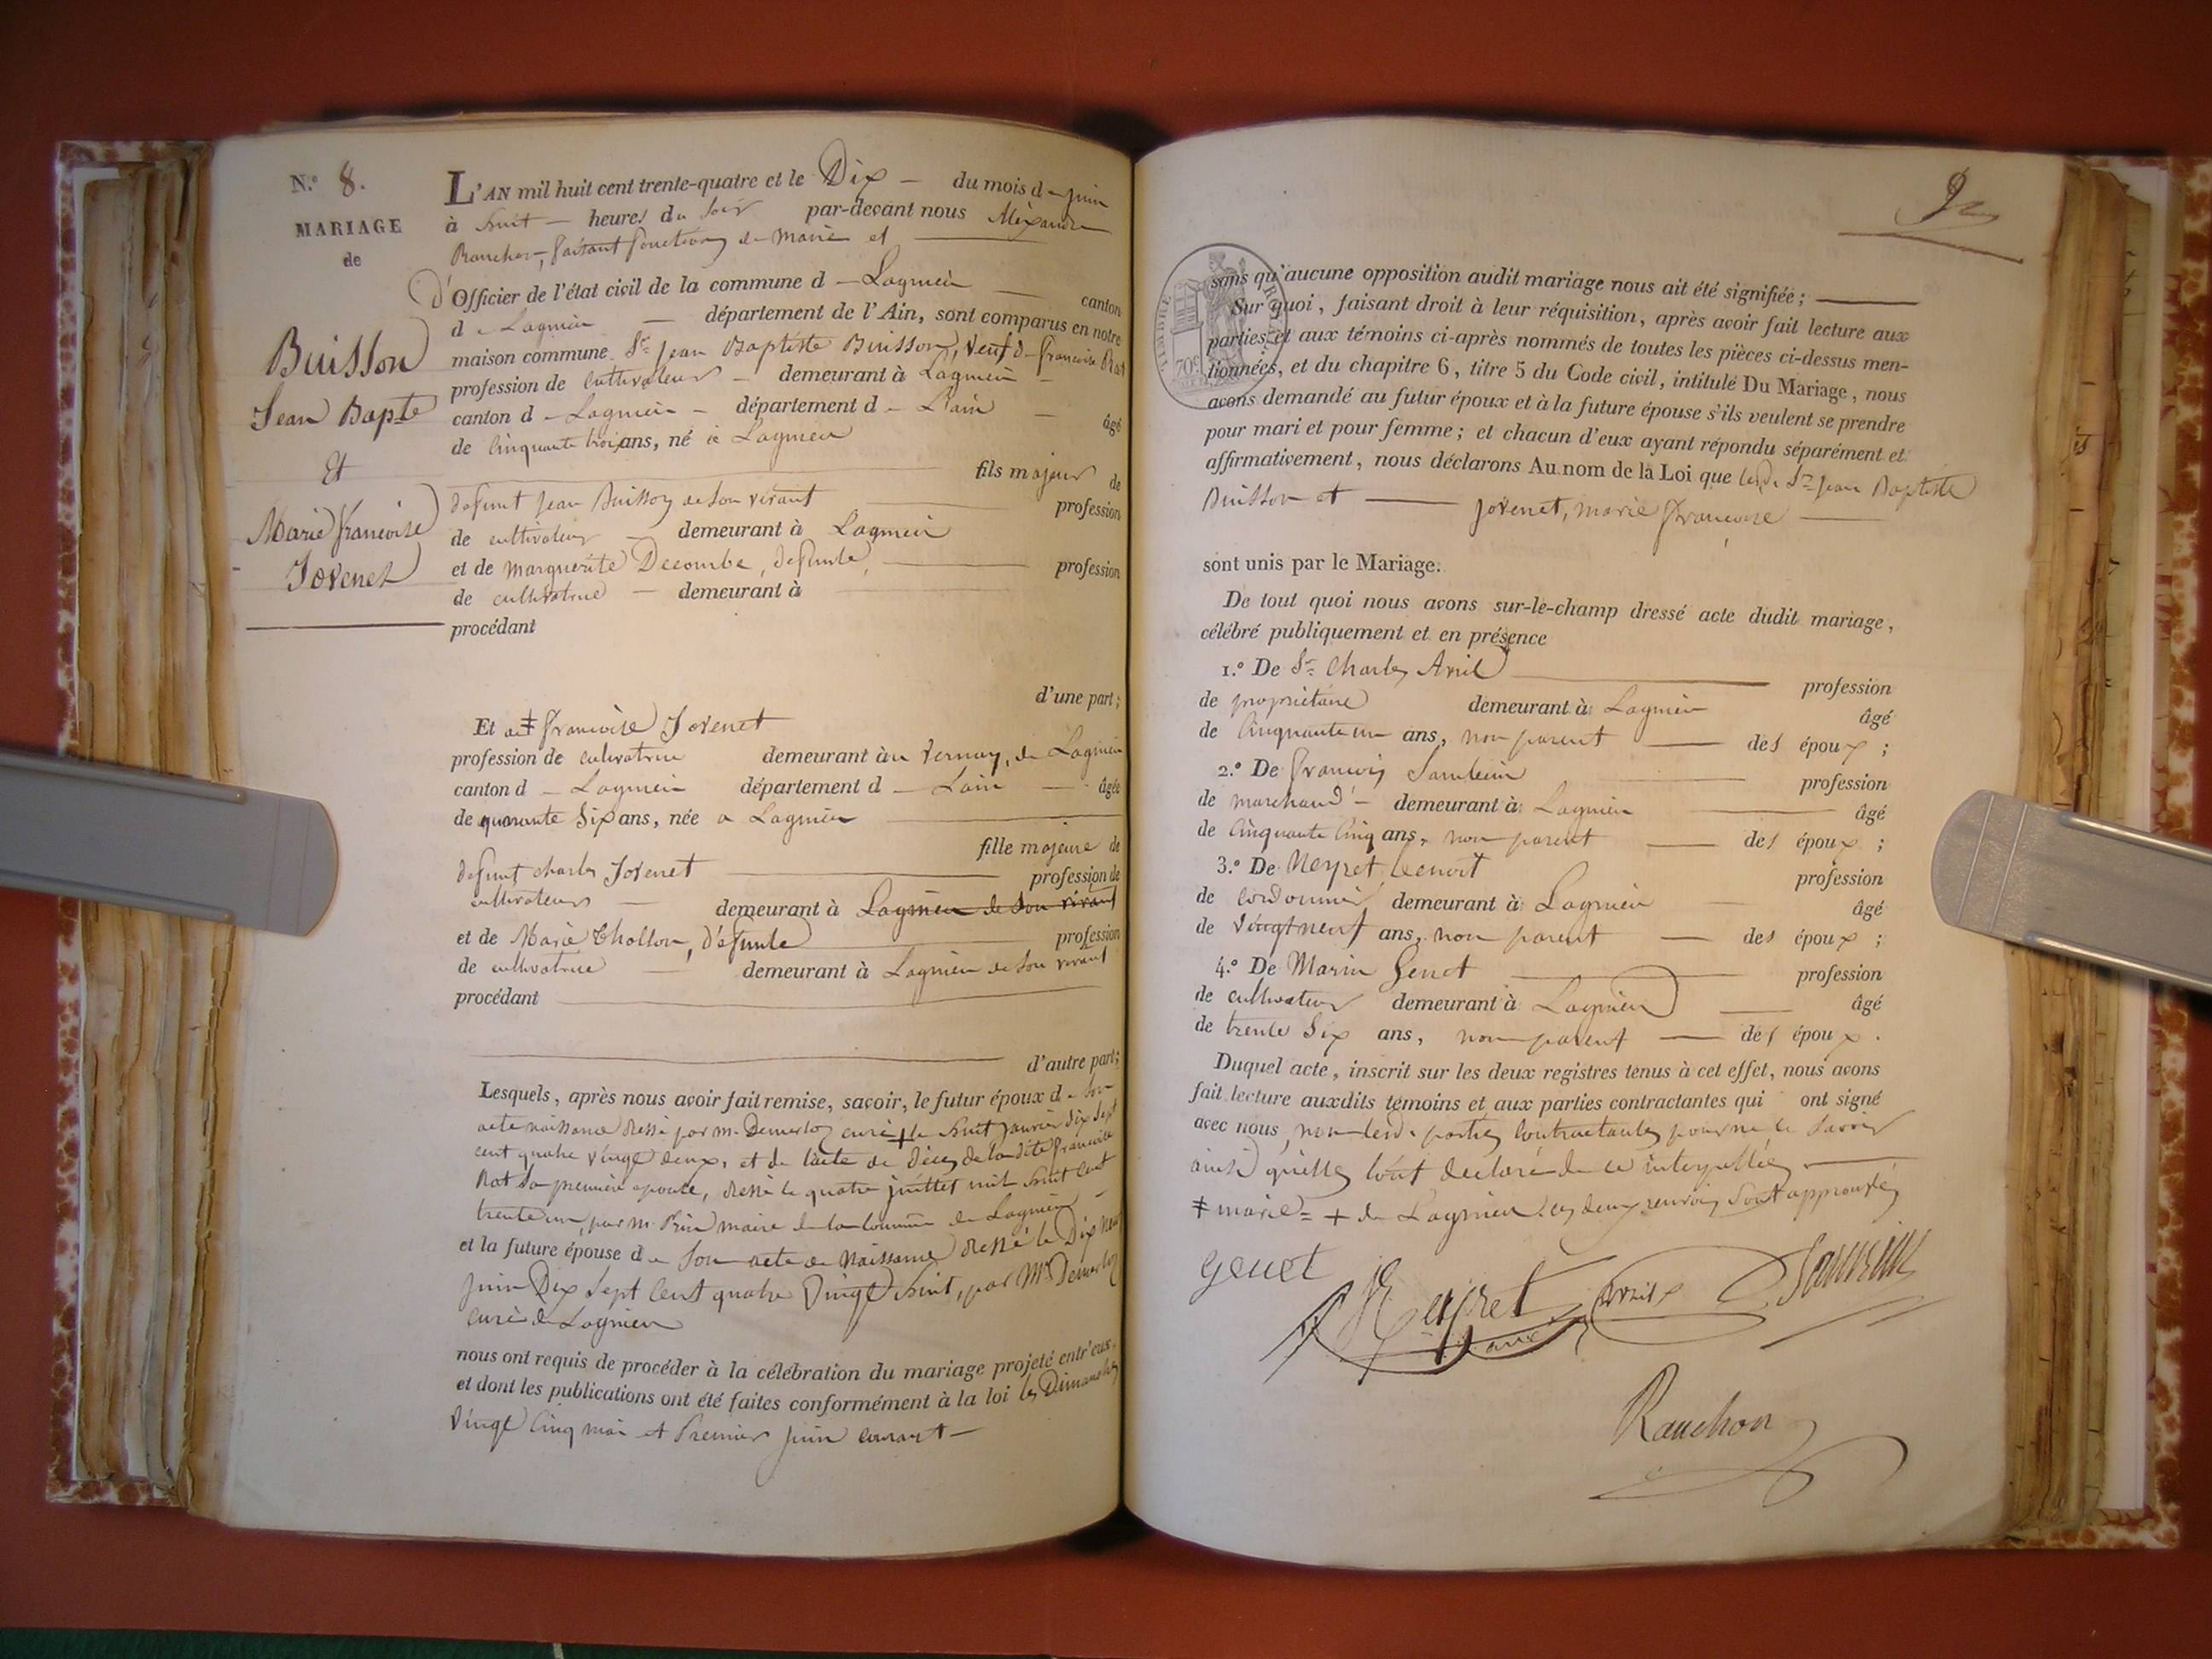 N.º 8.
MARIAGE
de
Buisson
Jean Bapte
Et
Marie françoise
Jovenet
L'AN mil huit cent trente-quatre et le Dix — du mois de juin
à huit — heures du soir par-devant nous Aléxandre
Rauchon, faisant fonctions de Maire et
d'Officier de l'état civil de la commune d — Lagnieu — canton
de Lagnieu — département de l'Ain, sont comparus en notre
maison commune Sr. Jean Baptiste Buisson, veuf de françoise Rat
profession de cultivateur — demeurant à Lagnieu —
canton d — Lagnieu — département d — L'ain — âgé
de cinquante trois ans, né à Lagnieu
fils majeur de
défunt Jean Buisson de son vivant profession
de cultivateur — demeurant à Lagnieu
et de marguerite Decombe, défunte, profession
de cultivatrice — demeurant à
procédant
d'une part;
Et de ǂ françoise Jovenet
profession de cultivatrice demeurant au Vernay, de Lagnieu
canton d — Lagnieu département d — Lain — âgée
de quarante Six ans, née à Lagnieu
fille majeure de
défunt charles Jovenet profession de
cultivateur — demeurant à Lagnieu de son vivant
et de Marie Chollon, défunte profession
de cultivatrice — demeurant à Lagnieu de son vivant
procédant
d'autre part;
Lesquels, après nous avoir fait remise, savoir, le futur époux de son
acte naissance dressé par m. curé + le huit janvier dix sept
cent quatre vingt deux, et de l'acte de décès de la dite françoise
Rat sa première epouse, dressé le quatre juillet mil huit cent
trente un, par m. maire de la commune de Lagnieu —
et la future épouse de son acte de Naissance dressé le Dix neuf
juin Dix Sept Cent quatre Vingt huit, par Mr
curé de Lagnieu
nous ont requis de procéder à la célébration du mariage projeté entr'eux,
et dont les publications ont été faites conformément à la loi les Dimanches
Vingt Cinq mai et Premier juin courant —
TIMBRE ROYAL
70c
sans qu'aucune opposition audit mariage nous ait été signifiée ;
Sur quoi, faisant droit à leur réquisition, après avoir fait lecture aux
parties et aux témoins ci-après nommés de toutes les pièces ci-dessus men-
tionnées, et du chapitre 6, titre 5 du Code civil, intitulé Du Mariage, nous
avons demandé au futur époux et à la future épouse s'ils veulent se prendre
pour mari et pour femme ; et chacun d'eux ayant répondu séparément et
affirmativement, nous déclarons Au nom de la Loi que led. Sr. Jean Baptiste
Buisson et — jovenet, marie françoise —
sont unis par le Mariage.
De tout quoi nous avons sur-le-champ dressé acte dudit mariage,
célébré publiquement et en présence
1.º De Sr. Charles Avril profession
de propriétaire demeurant à Lagnieu âgé
de Cinquante un ans, non parent — des époux ;
2.º De françois profession
de marchand — demeurant à Lagnieu âgé
de Cinquante Cinq ans, non parent — des époux ;
3.º De Neyret benoit profession
de cordonnier demeurant à Lagnieu âgé
de Vingt neuf ans, non parent — des époux ;
4.º De Marin Genet profession
de cultivateur demeurant à Lagnieu — âgé
de trente Six ans, non parent — des époux.
Duquel acte, inscrit sur les deux registres tenus à cet effet, nous avons
fait lecture auxdits témoins et aux parties contractantes qui ont signé
avec nous, non lesd. parties contractantes pour ne le savoir
ainsi qu'elles l'ont declaré de ce interpellées.
ǂ marie = + de Lagnieu, ces deux renvois sont approuvés
genet Neyret Avril
Rauchon